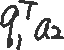 q₁ᵀa₂